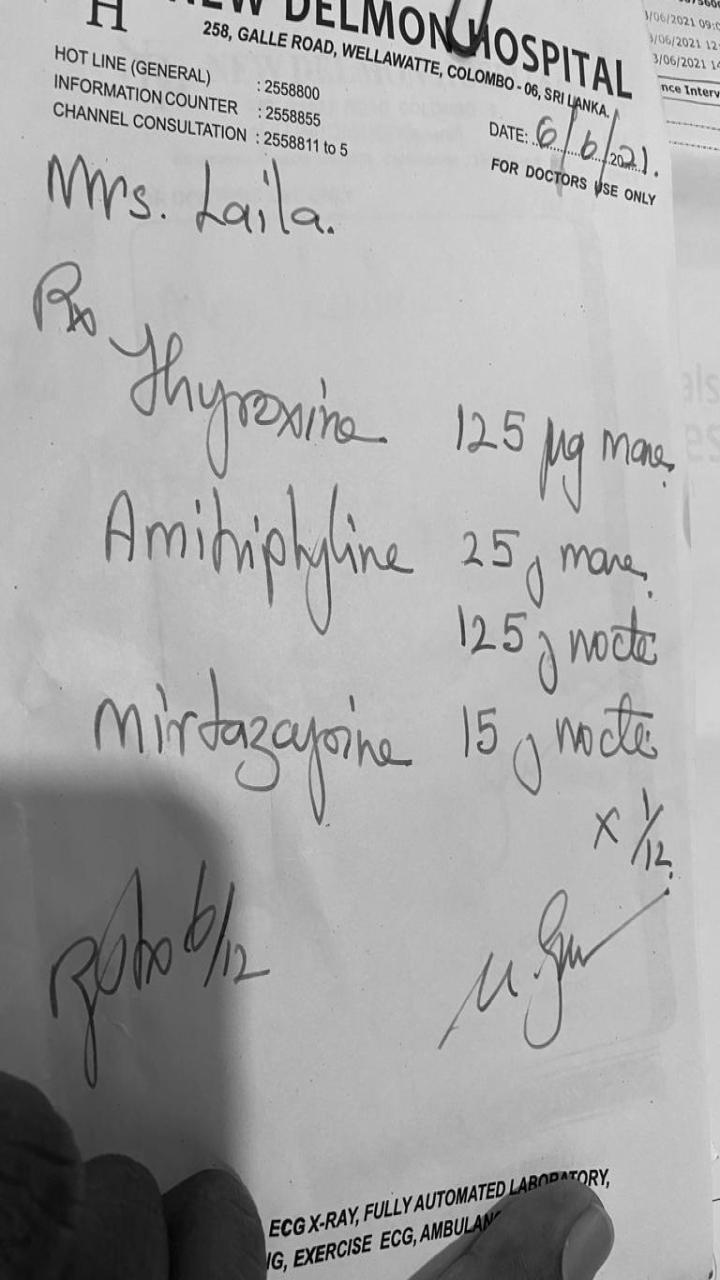 H NEW DELMON HOSPITAL
258, GALLE ROAD, WELLAWATTE, COLOMBO - 06, SRI LANKA.
HOT LINE (GENERAL) : 2558800
INFORMATION COUNTER : 2558855
CHANNEL CONSULTATION : 2558811 to 5
DATE: 6/6/2021.
FOR DOCTORS USE ONLY
/06/2021 09:0
/06/2021 12
3/06/2021 14
nce Interv
Mrs. Laila.
Rx
Thyroxine 125 µg mane.
Amitriptyline 25 mane.
125 nocte
Mirtazapine 15 nocte
x 1/12
6/12
ECG X-RAY, FULLY AUTOMATED LABORATORY,
G, EXERCISE ECG, AMBULAN